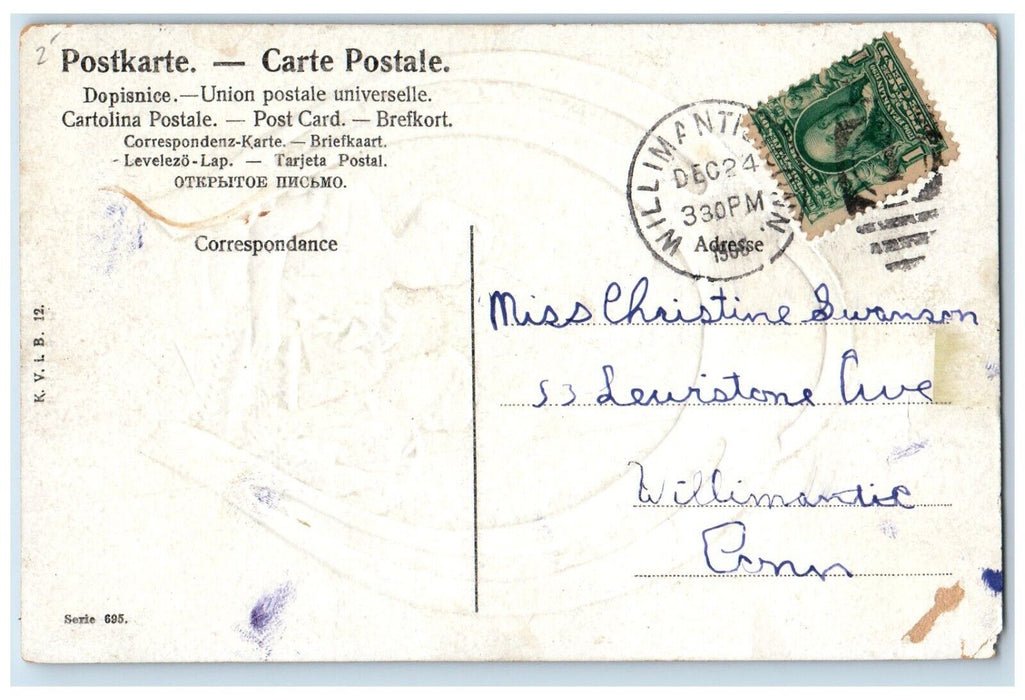 2
Postkarte. — Carte Postale.
Dopisnice.—Union postale universelle.
Cartolina Postale. — Post Card. — Brefkort.
Correspondenz-Karte. — Briefkaart.
Levelezö-Lap. — Tarjeta Postal.
ОТКРЫТОЕ ПИСЬМО.
Correspondance
K. V. i. B. 12.
Serie 695.
WILLIMANTIC CONN.
DEC 24
3 30 PM
Adresse
Miss Christine Swanson
53 Lewistone Ave
Willimantic
Conn